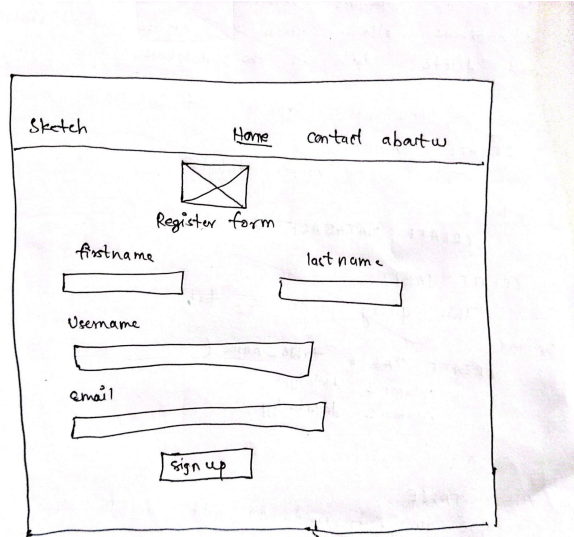 Sketch Home contact about us
Register form
firstname last name
Username
email
sign up